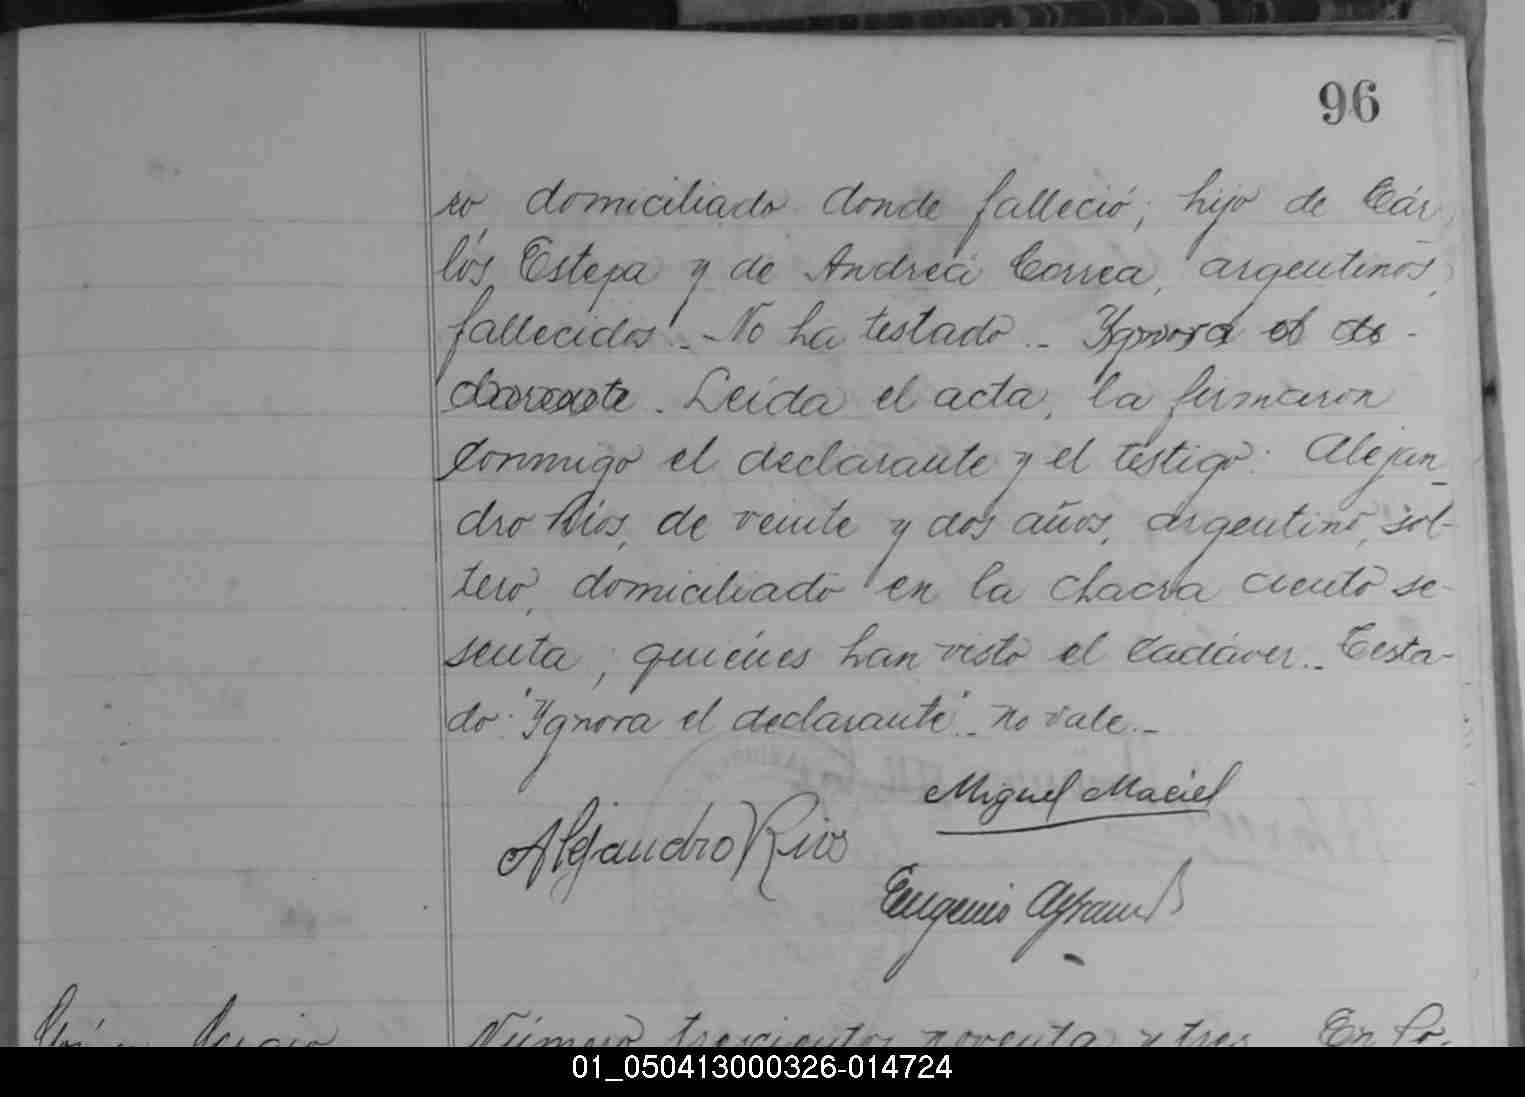 96
ro, domiciliado donde falleció; hijo de Cár-
los Estepa y de Andrea Correa, argentinos,
fallecidos.- No ha testado.- Ygnora el de-
clarante. Leida el acta, la firmaron
conmigo el declarante y el testigo: Alejan-
dro Rios, de veinte y dos años, argentino, sol-
tero, domiciliado en la chacra ciento se-
senta; quiénes han visto el cadáver.- Testa-
do: "Ygnora el declarante" no vale.-
Miguel Maciel
Alejandro Rios
Eugenio
Número trescientos noventa y tres. En Lo-
01_050413000326-014724